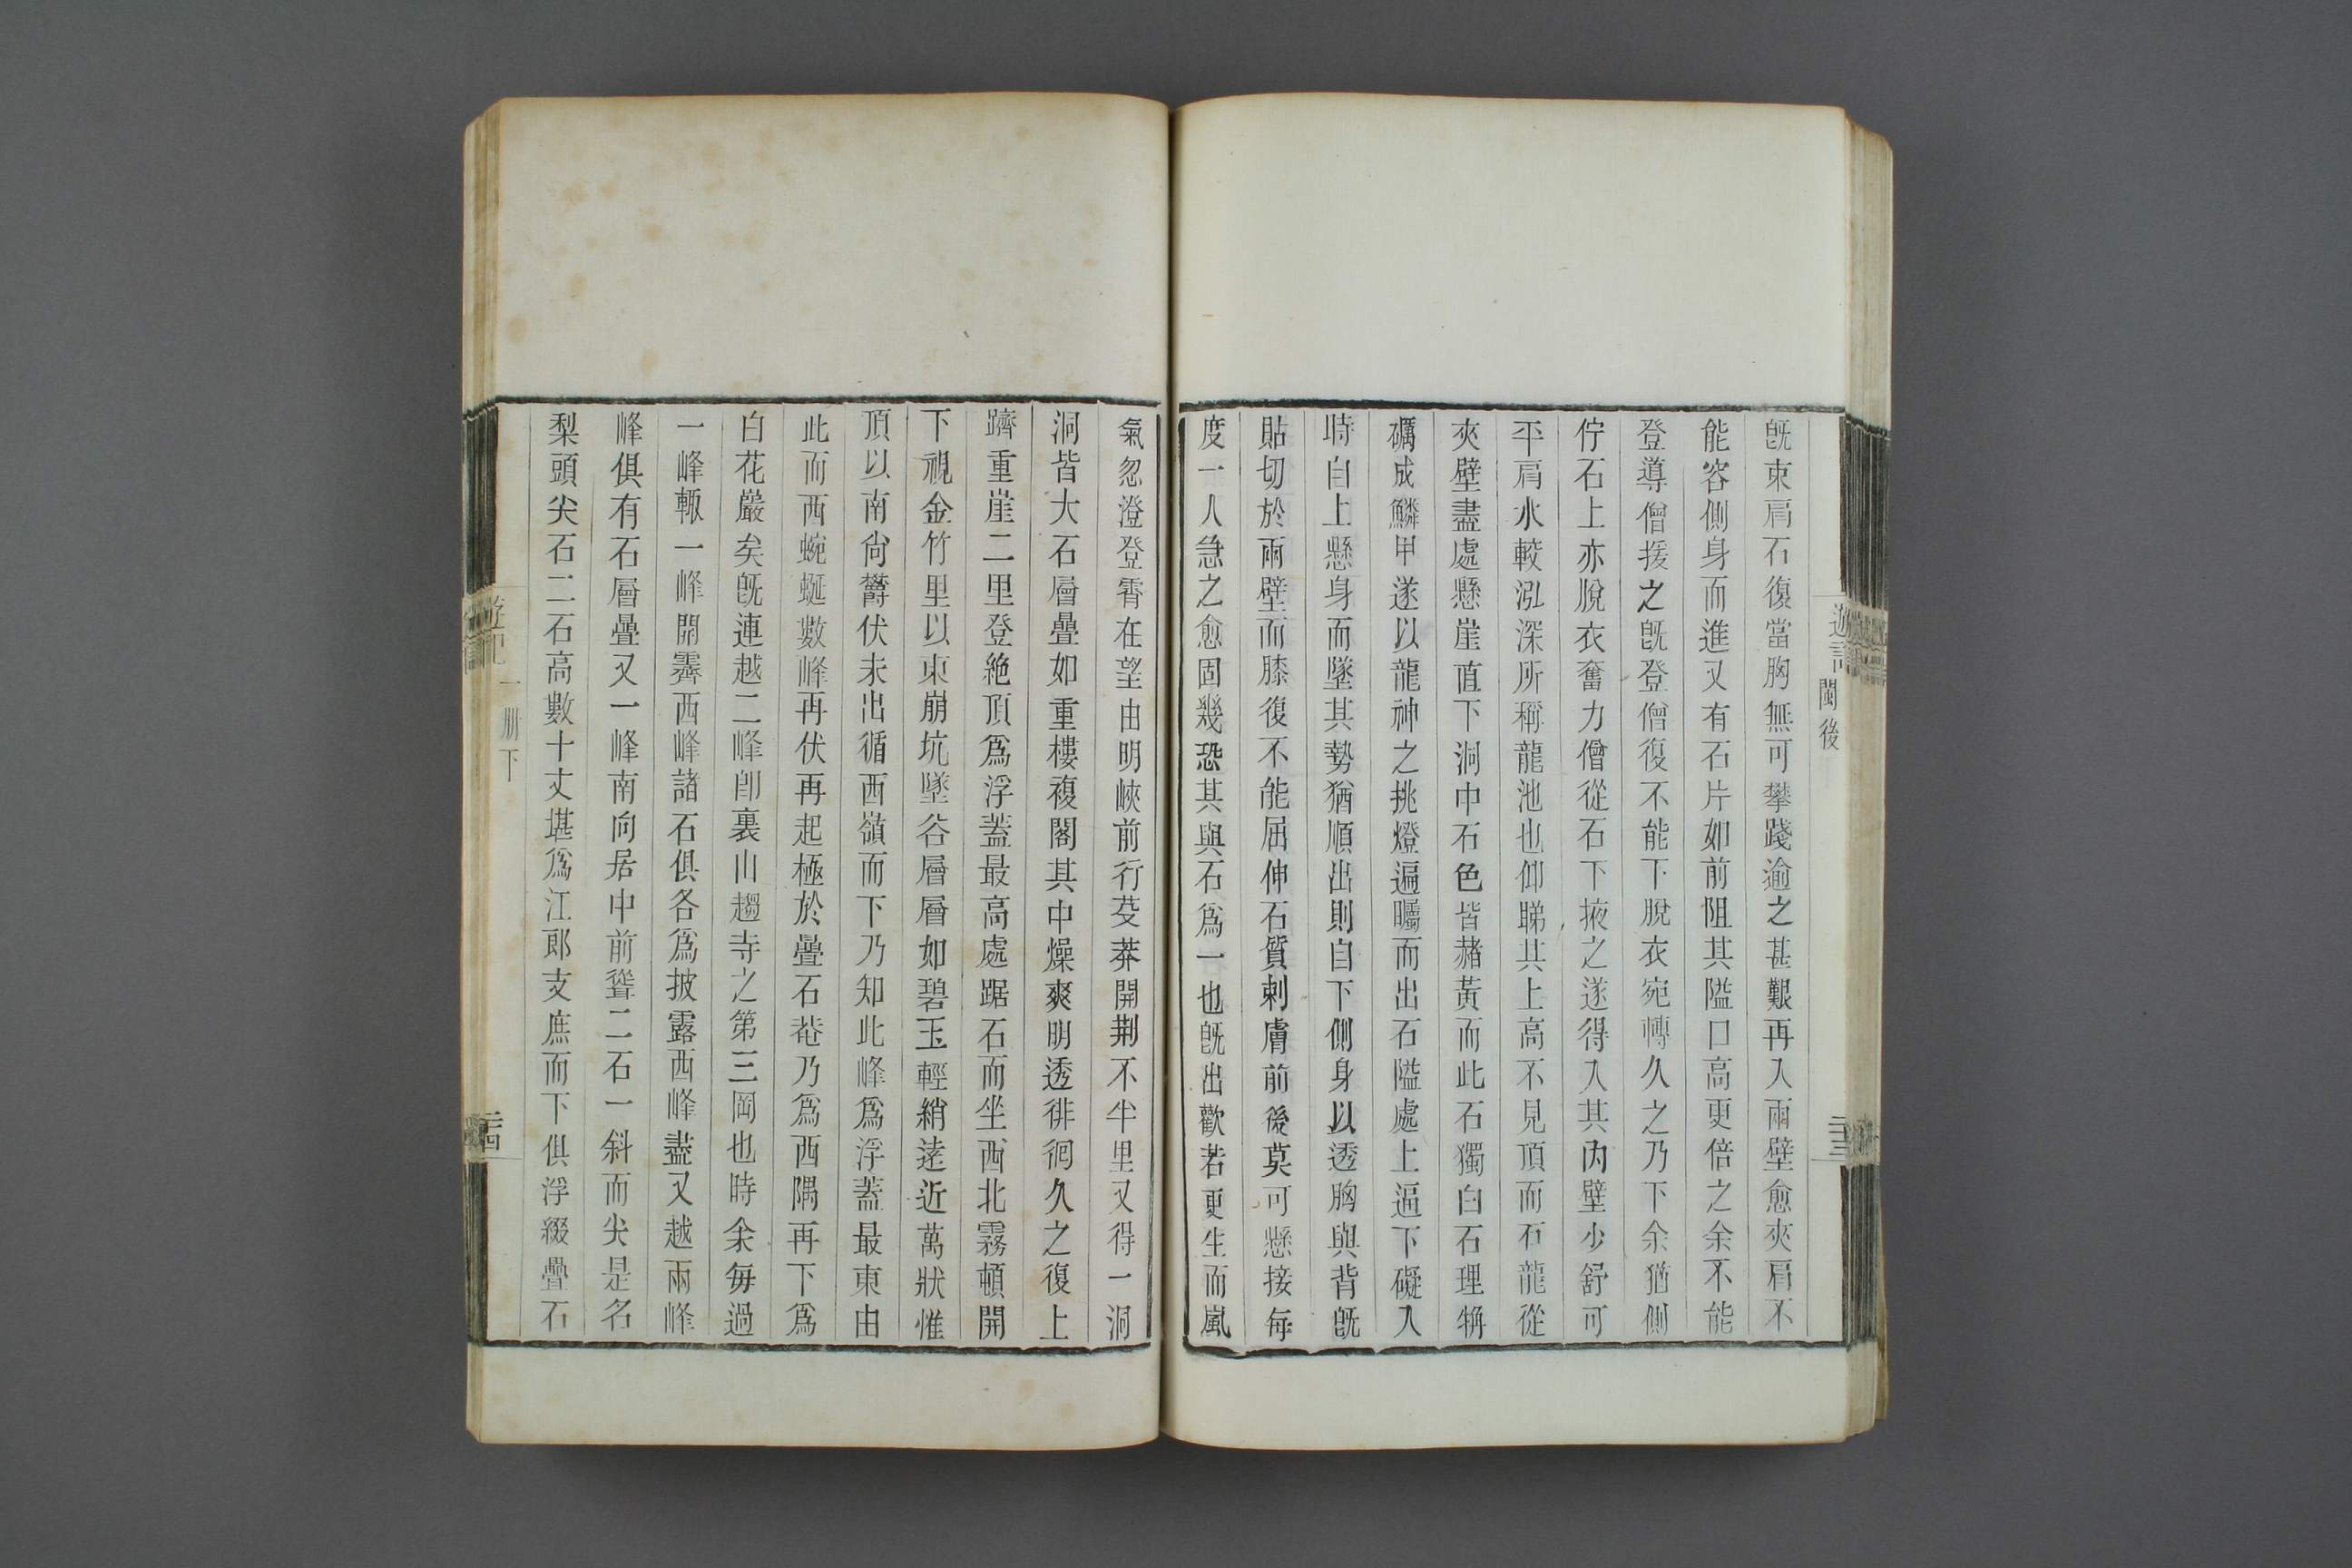 遊記
閩後
二十三
既束肩石復當胸無可攀踐逾之甚艱再入兩壁愈夾肩不
能容側身而進又有石片如前阻其隘口高更倍之余不能
登導僧援之既登僧復不能下脫衣宛轉久之乃下余猶側
佇石上亦脫衣奮力僧從石下掖之遂得入其內壁少舒可
平肩水較泓深所稱龍池也仰睇其上高不見頂而石龍從
夾壁盡處懸崖直下洞中石色皆赭黃而此石獨白石理觕
礪成鱗甲遂以龍神之挑燈遍矚而出石隘處上逼下礙入
時自上懸身而墜其勢猶順出則自下側身以透胸與背既
貼切於兩壁而膝復不能屈伸石質刺膚前後莫可懸接每
度一人急之愈固幾恐其與石為一也既出歡若更生而嵐
氣忽澄登霄在望由明峽前行芟莽開荆不半里又得一洞
洞皆大石層疊如重樓複閣其中燥爽明透徘徊久之復上
躋重崖二里登絶頂為浮蓋最高處踞石而坐西北霧頓開
下視金竹里以東崩坑墜谷層層如碧玉輕綃遠近萬狀惟
頂以南尚欝伏未出循西嶺而下乃知此峰為浮蓋最東由
此而西蜿蜒數峰再伏再起極於疊石菴乃為西隅再下為
白花巖矣既連越二峰卽裏山趨寺之第三岡也時余每過
一峰輙一峰開霽西峰諸石俱各為披露西峰盡又越兩峰
峰俱有石層疊又一峰南向居中前聳二石一斜而尖是名
梨頭尖石二石高數十丈堪為江郎支庶而下俱浮綴疊石
遊記
一册下
二十四